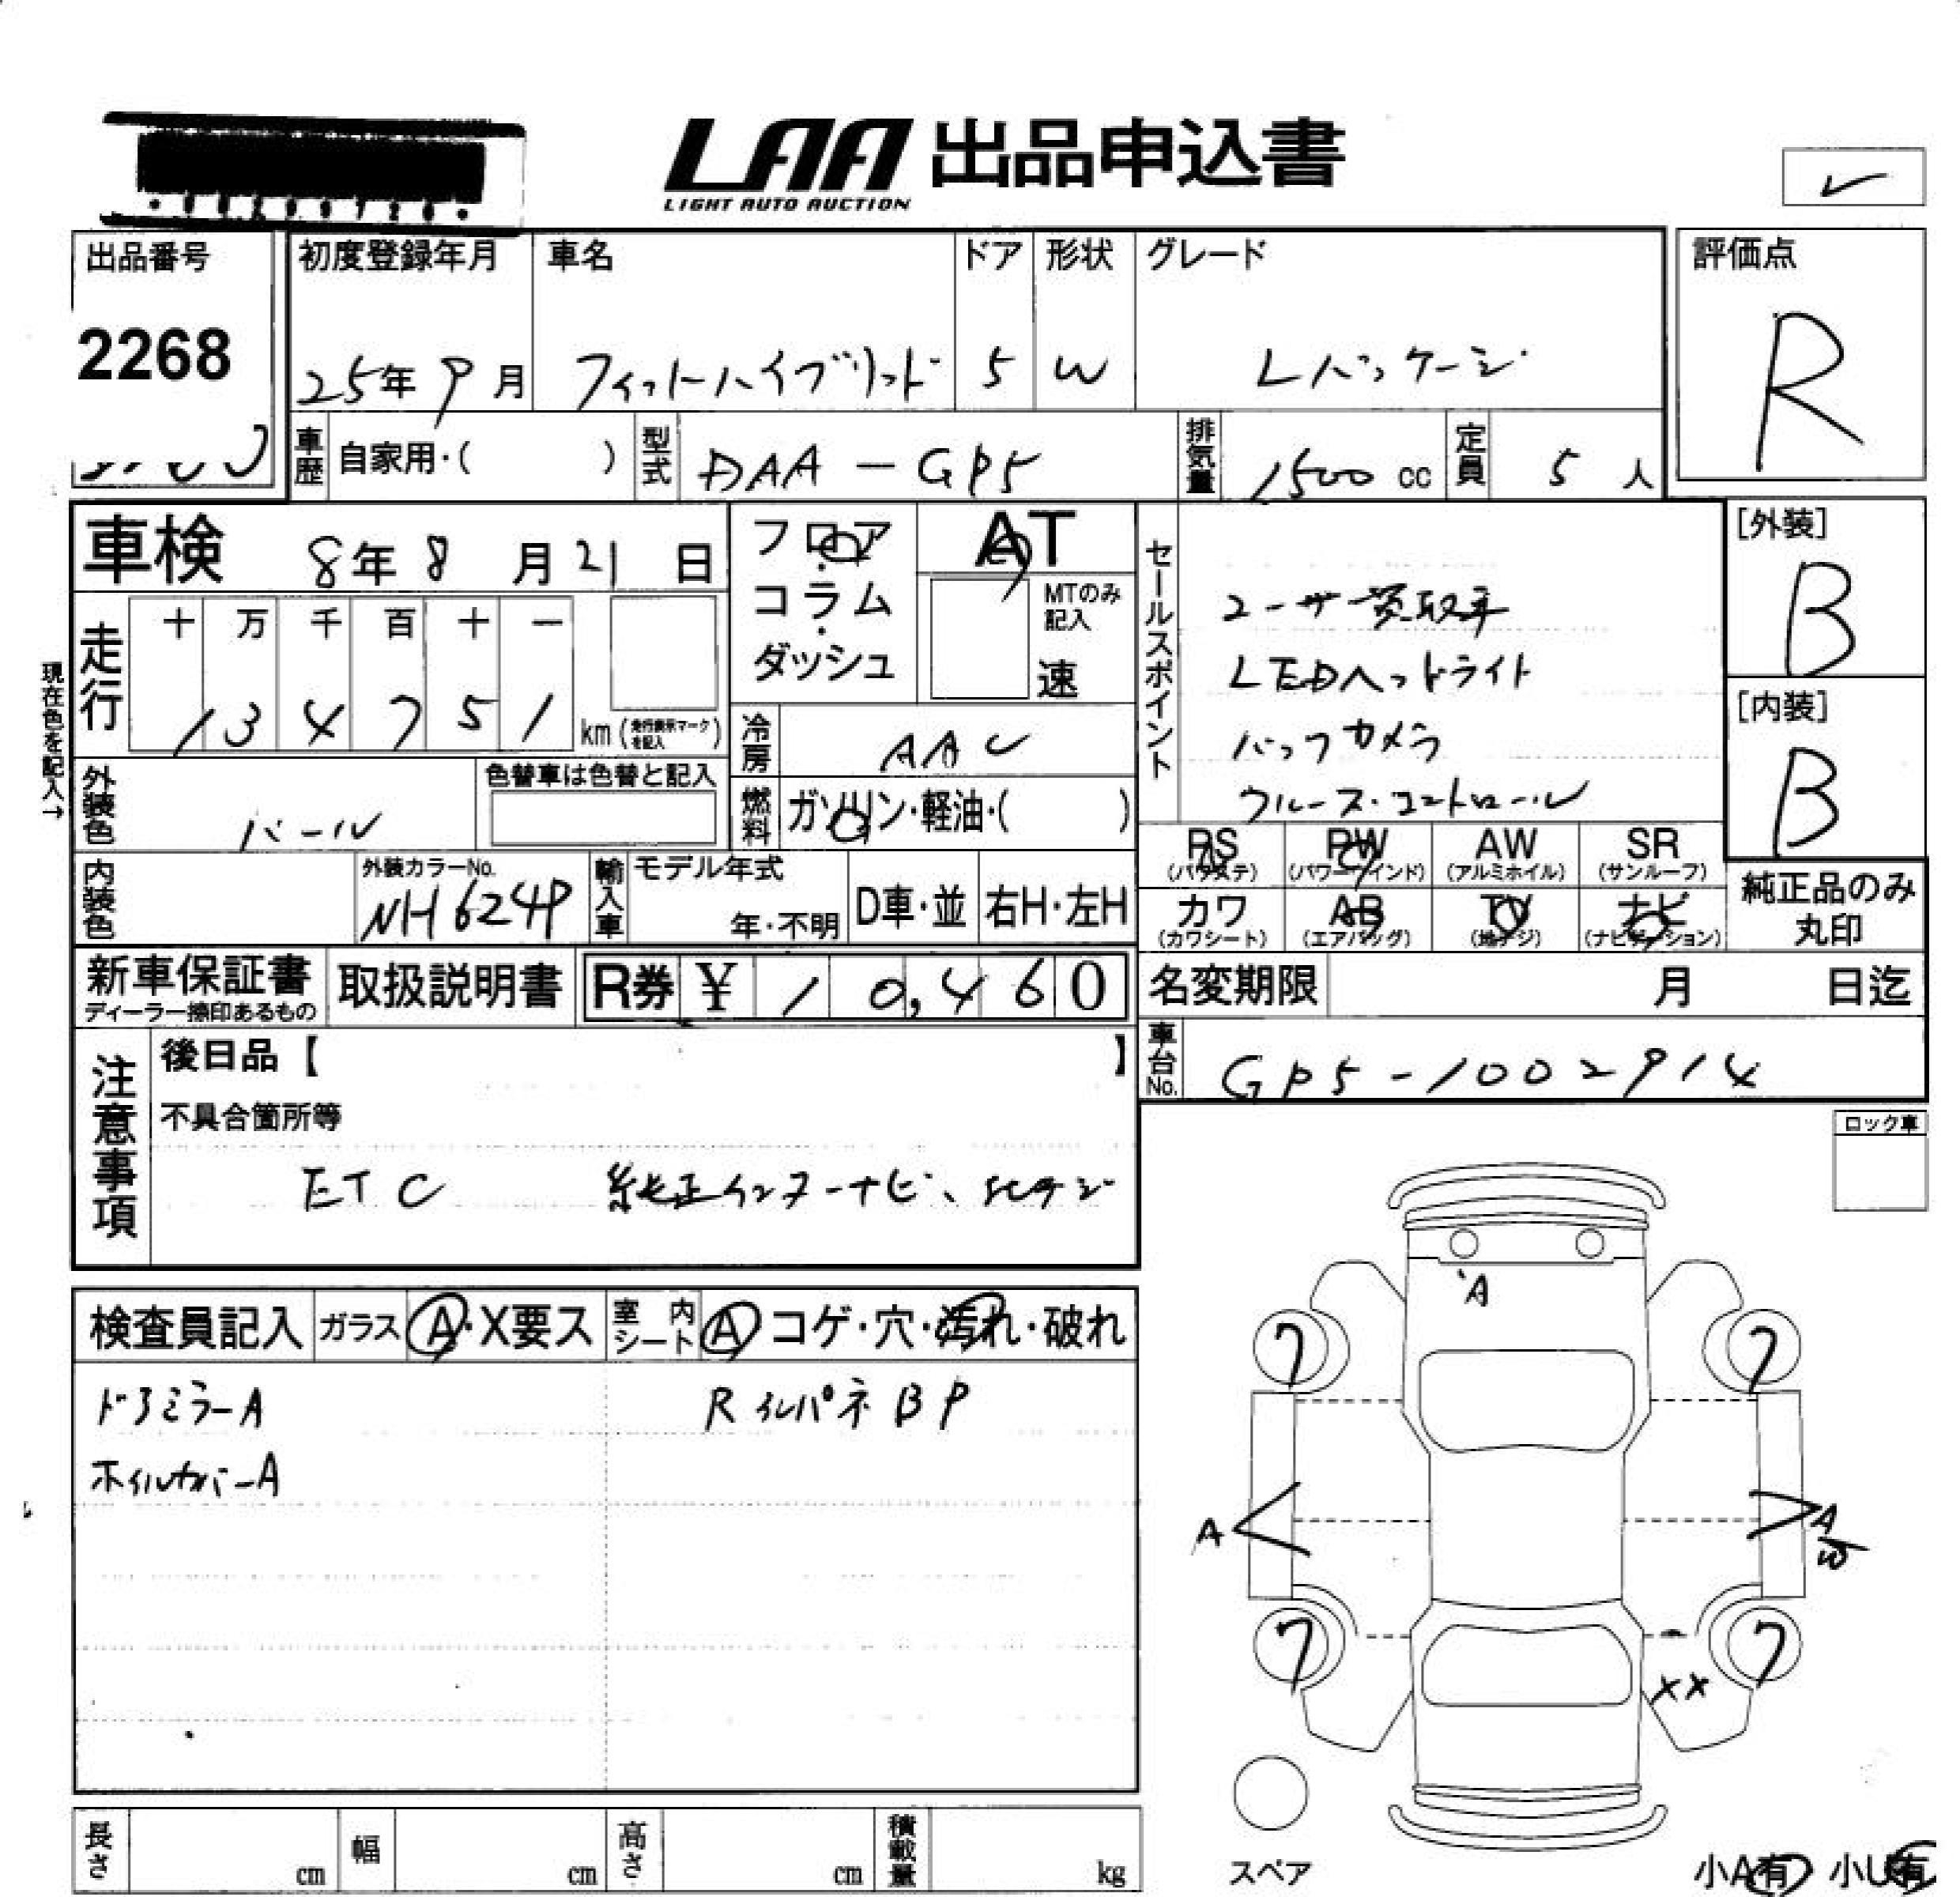 LAA 出品申込書
LIGHT AUTO AUCTION
出品番号
2268
初度登録年月
25年 9月
車名
フィットハイブリッド
ドア
5
形状
W
グレード
Lパッケージ
評価点
R
車歴 自家用・( )
型式 DAA-GP5
排気量 1500 cc
定員 5 人
車検 8年 8月 21日
フロア・コラム・ダッシュ
AT
MTのみ記入
速
セールスポイント
ユーザー買取車
LEDヘッドライト
バックカメラ
クルーズ・コントロール
[外装]
B
[内装]
B
現在色を記入→
走行
十 万 千 百 十 一
1 3 4 7 5 1 km (走行表示マークを記入)
冷房 AAC
外装色 パール
色替車は色替と記入
燃料 ガソリン・軽油・( )
PS (パワステ) PW (パワーウインド) AW (アルミホイル) SR (サンルーフ)
カワ (カワシート) AB (エアバッグ) TV (地デジ) ナビ (ナビゲーション)
純正品のみ丸印
内装色
外装カラーNo.
NH624P
輸入車 モデル年式 年・不明 D車・並 右H・左H
新車保証書
ディーラー捺印あるもの
取扱説明書
R券 ¥ 10,460
名変期限 月 日迄
車台No. GP5-1002914
注意事項
後日品【 】
不具合箇所等
ETC 純正インターナビ、地デジ
ロック車
検査員記入 ガラス A・X要ス 室内シート A コゲ・穴・汚れ・破れ
ドアミラーA
RインパネBP
ホイルカバーA
A
フ フ
A
A
W
フ フ
XX
スペア
長さ cm 幅 cm 高さ cm 積載量 kg
小A有 小U有